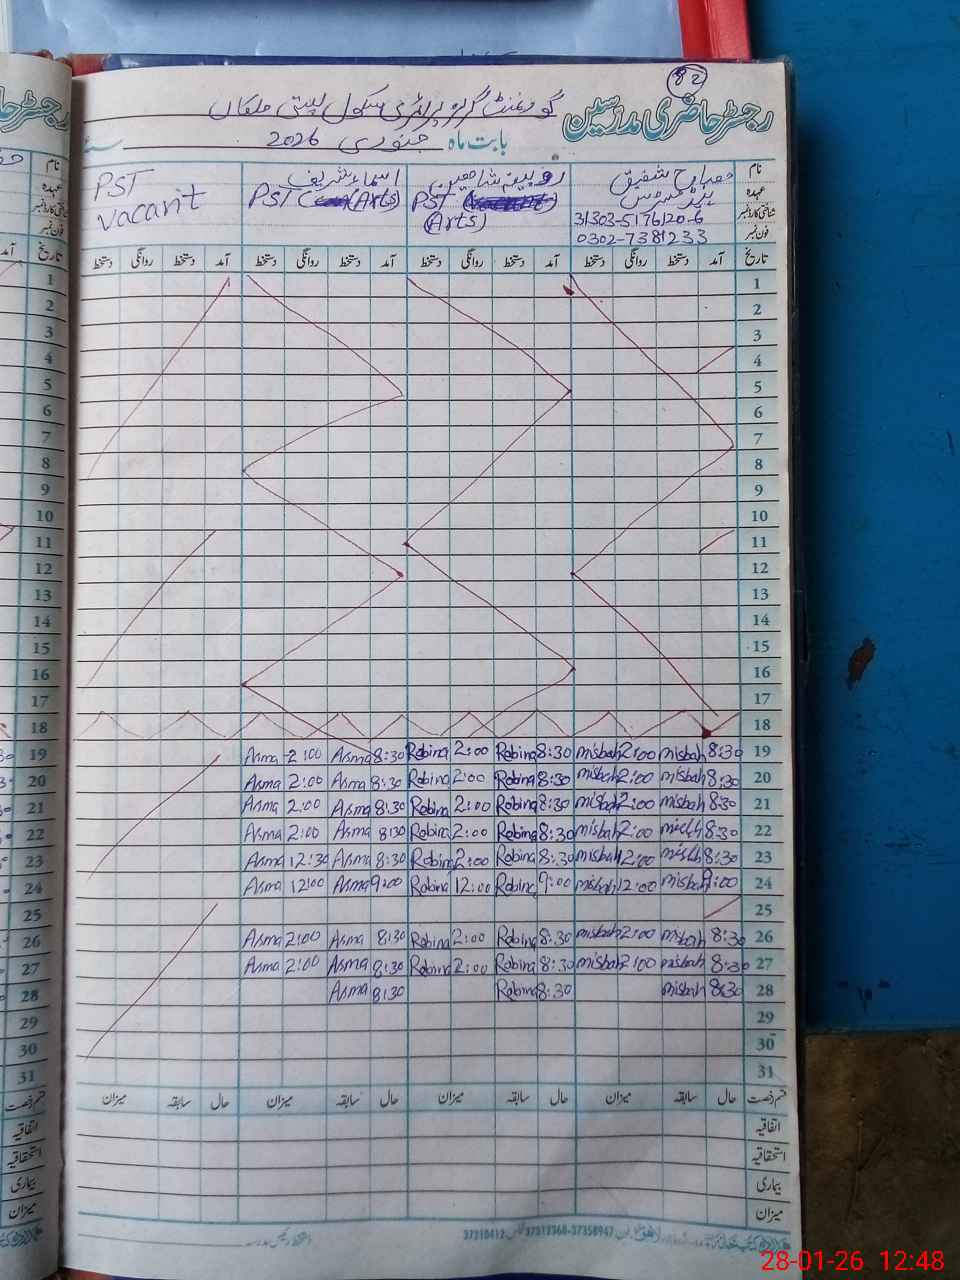 82
رجسٹر حاضری مدرسین
گورنمنٹ گرلز پرائمری سکول بستی ملکاں
بابت ماہ جنوری 2026
نام مصباح شفیق روبینہ شاھین اسماء شریف PST vacant
عہدہ ہیڈ مسٹریس PST (Arts) PST (Arts)
شناختی کارڈ نمبر 31303-5176120-6
فون نمبر 0302-7381233
تاریخ آمد دستخط روانگی دستخط آمد دستخط روانگی دستخط آمد دستخط روانگی دستخط آمد دستخط روانگی دستخط
1
2
3
4
5
6
7
8
9
10
11
12
13
14
15
16
17
18
Asma 2:00 Asma 8:30 Robina 2:00 Robina 8:30 misbah 2:00 misbah 8:30 19
Asma 2:00 Asma 8:30 Robina 2:00 Robina 8:30 misbah 2:00 misbah 8:30 20
Asma 2:00 Asma 8:30 Robina 2:00 Robina 8:30 misbah 2:00 misbah 8:30 21
Asma 2:00 Asma 8:30 Robina 2:00 Robina 8:30 misbah 2:00 misbah 8:30 22
Asma 12:30 Asma 8:30 Robina 2:00 Robina 8:30 misbah 12:00 misbah 8:30 23
Asma 12:00 Asma 9:00 Robina 12:00 Robina 9:00 misbah 12:00 misbah 9:00 24
25
Asma 2:00 Asma 8:30 Robina 2:00 Robina 8:30 misbah 2:00 misbah 8:30 26
Asma 2:00 Asma 8:30 Robina 2:00 Robina 8:30 misbah 2:00 misbah 8:30 27
Asma 8:30 Robina 8:30 misbah 8:30 28
29
30
31
قسم رخصت حال سابقہ میزان حال سابقہ میزان حال سابقہ میزان حال سابقہ میزان
اتفاقیہ
استحقاقیہ
بیماری
میزان
37312368-37358947 37210412
دستخط رئیس مدرسہ
28-01-26 12:48